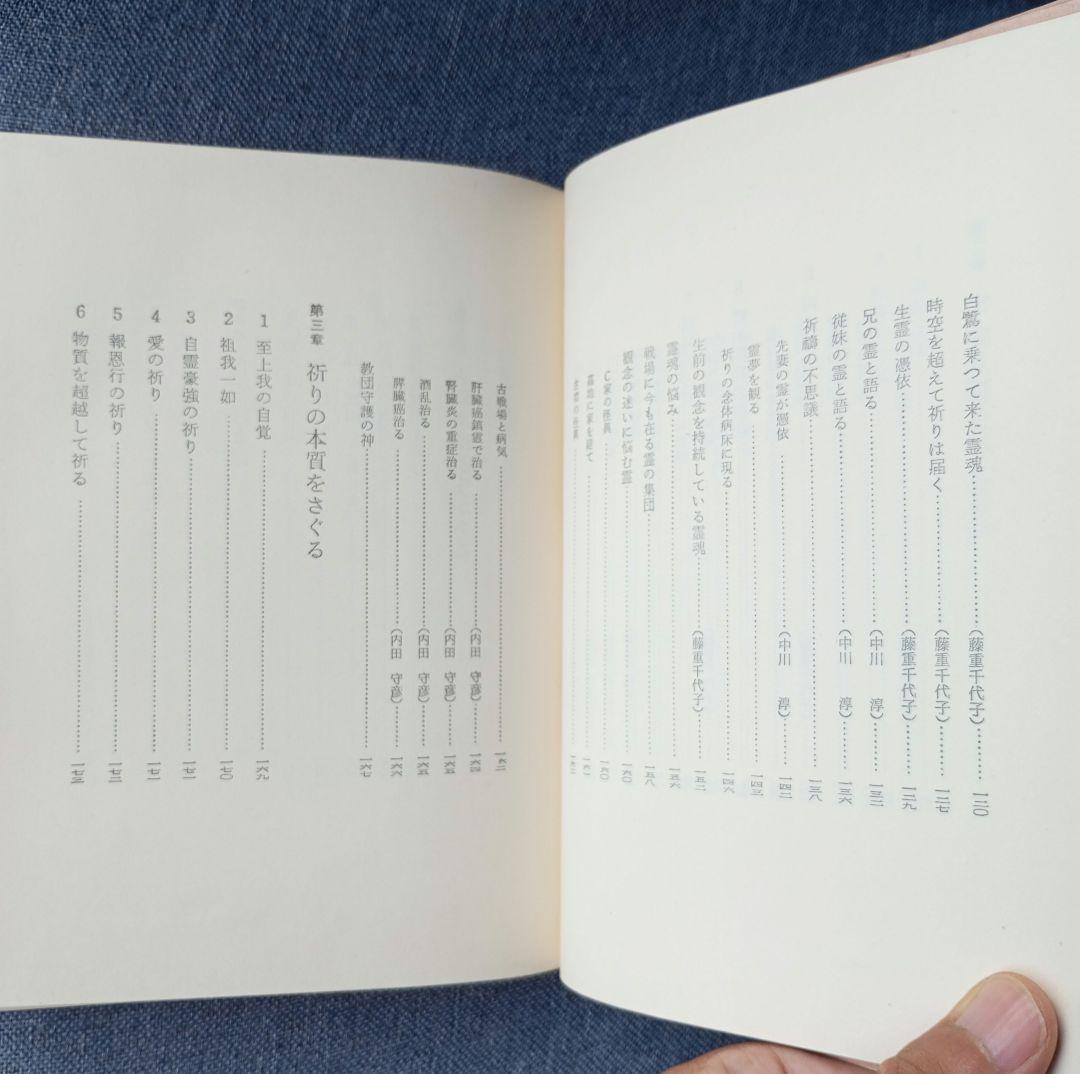 白鷺に乗つて来た霊魂……………………(藤重千代子)……一二〇
時空を超えて祈りは届く…………………(藤重千代子)……一二七
生霊の憑依…………………………………(藤重千代子)……一二九
兄の霊と語る………………………………(中川 淳)……一三二
従妹の霊と語る……………………………(中川 淳)……一三六
祈禱の不思議………………………………一三八
先妻の霊が憑依……………………………(中川 淳)……一四二
霊夢を観る…………………………………一四三
祈りの念体病床に現る……………………一四六
生前の観念を持続している霊魂…………(藤重千代子)……一五二
霊魂の悩み…………………………………一五六
戦場に今も在る霊の集団…………………一五八
観念の迷いに悩む霊………………………一六〇
C家の怪異…………………………………一六〇
墓地に家を建て……………………………一六一
古戦場と病気………………………………一六二
肝臓癌鎮霊で治る…………………………(内田 守彦)……一六四
腎臓炎の重症治る…………………………(内田 守彦)……一六五
酒乱治る……………………………………(内田 守彦)……一六五
脾臓癌治る…………………………………(内田 守彦)……一六六
教団守護の神………………………………一六七
第三章 祈りの本質をさぐる
1 至上我の自覚……………………………一六九
2 祖我一如…………………………………一七〇
3 自霊豪強の祈り…………………………一七一
4 愛の祈り…………………………………一七一
5 報恩行の祈り……………………………一七二
6 物質を超越して祈る……………………一七三